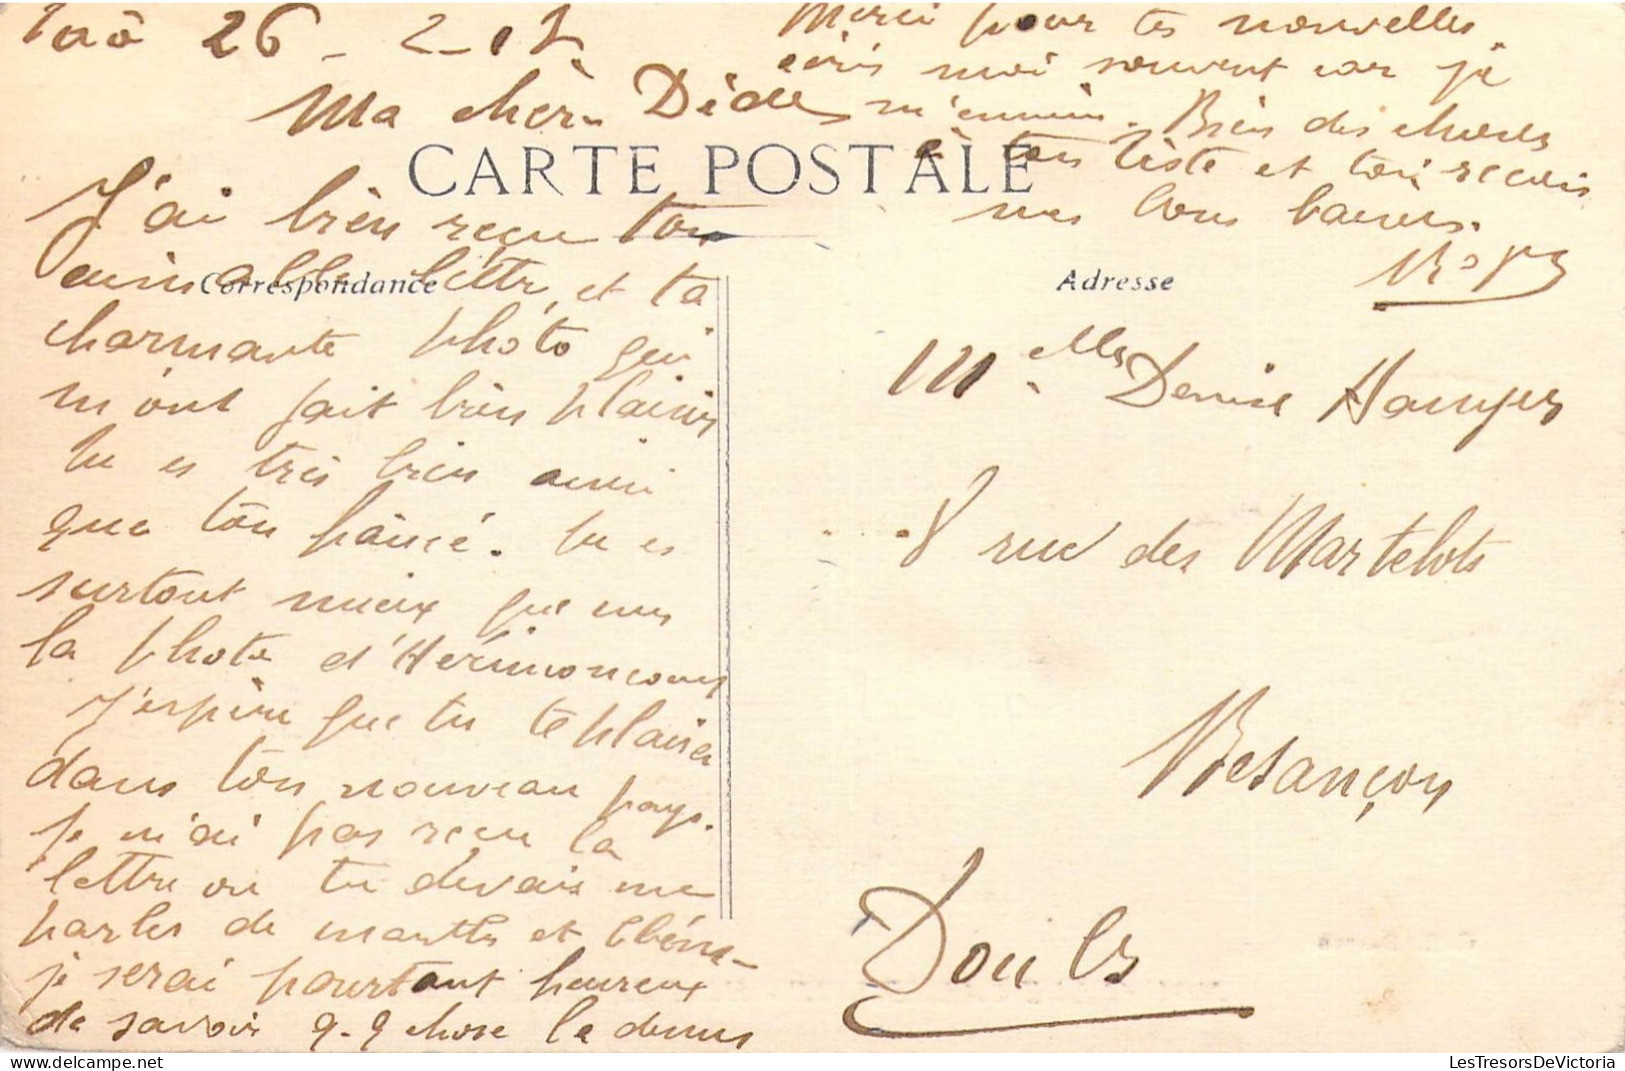 26 - 2 -
Ma chère Dède
CARTE POSTALE
J'ai bien reçu ton
aimable lettre, et ta
charmante photo qui
m'ont fait bien plaisir
tu es très bien ainsi
que ton fiancé. tu es
surtout mieux que sur
la photo d'Hérimoncourt
J'espère que tu te plaises
dans ton nouveau pays.
je n'ai pas reçu la
lettre ou tu devais me
parler de marthe et
je serai pourtant heureux
de savoir q.q chose la dessus
Merci pour tes nouvelles
écris moi souvent car je
m'ennuie. Bien des choses
à ton et toi reçois
mes bons baisers.
Correspondance
Adresse
Melle Denise
8 rue des Martelots
Besançon
Doubs
LesTresorsDeVictoria